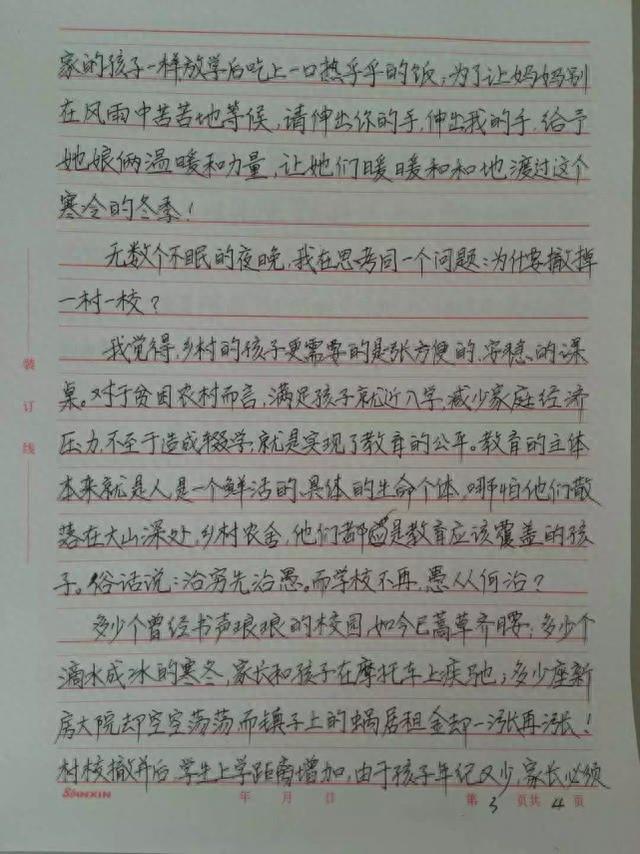 家的孩子一样放学后吃上一口热乎乎的饭,为了让妈妈别
在风雨中苦苦地等候,请伸出你的手,伸出我的手,给予
她娘俩温暖和力量,让她们暖暖和和地渡过这个
寒冷的冬季!
无数个不眠的夜晚,我在思考同一个问题:为什要撤掉
一村一校?
我觉得,乡村的孩子更需要的是张方便的、安稳的课
桌。对于贫困农村而言,满足孩子就近入学,减少家庭经济
压力,不至于造成辍学,就是实现了教育的公平。教育的主体
本来就是人是一个鲜活的、具体的生命个体,哪怕他们散
落在大山深处,乡村农舍,他们都是教育应该覆盖的孩
子。俗话说:治穷先治愚。而学校不再,愚从何治?
多少个曾经书声琅琅的校园,如今已蒿草齐腰;多少个
滴水成冰的寒冬,家长和孩子在摩托车上疾驰;多少座新
房大院却空空荡荡而镇子上的蜗居租金却一涨再涨!
村校撤并后,学生上学距离增加,由于孩子年纪又少,家长必须
装订线
SIANXIN 年 月 日 第3页共4页